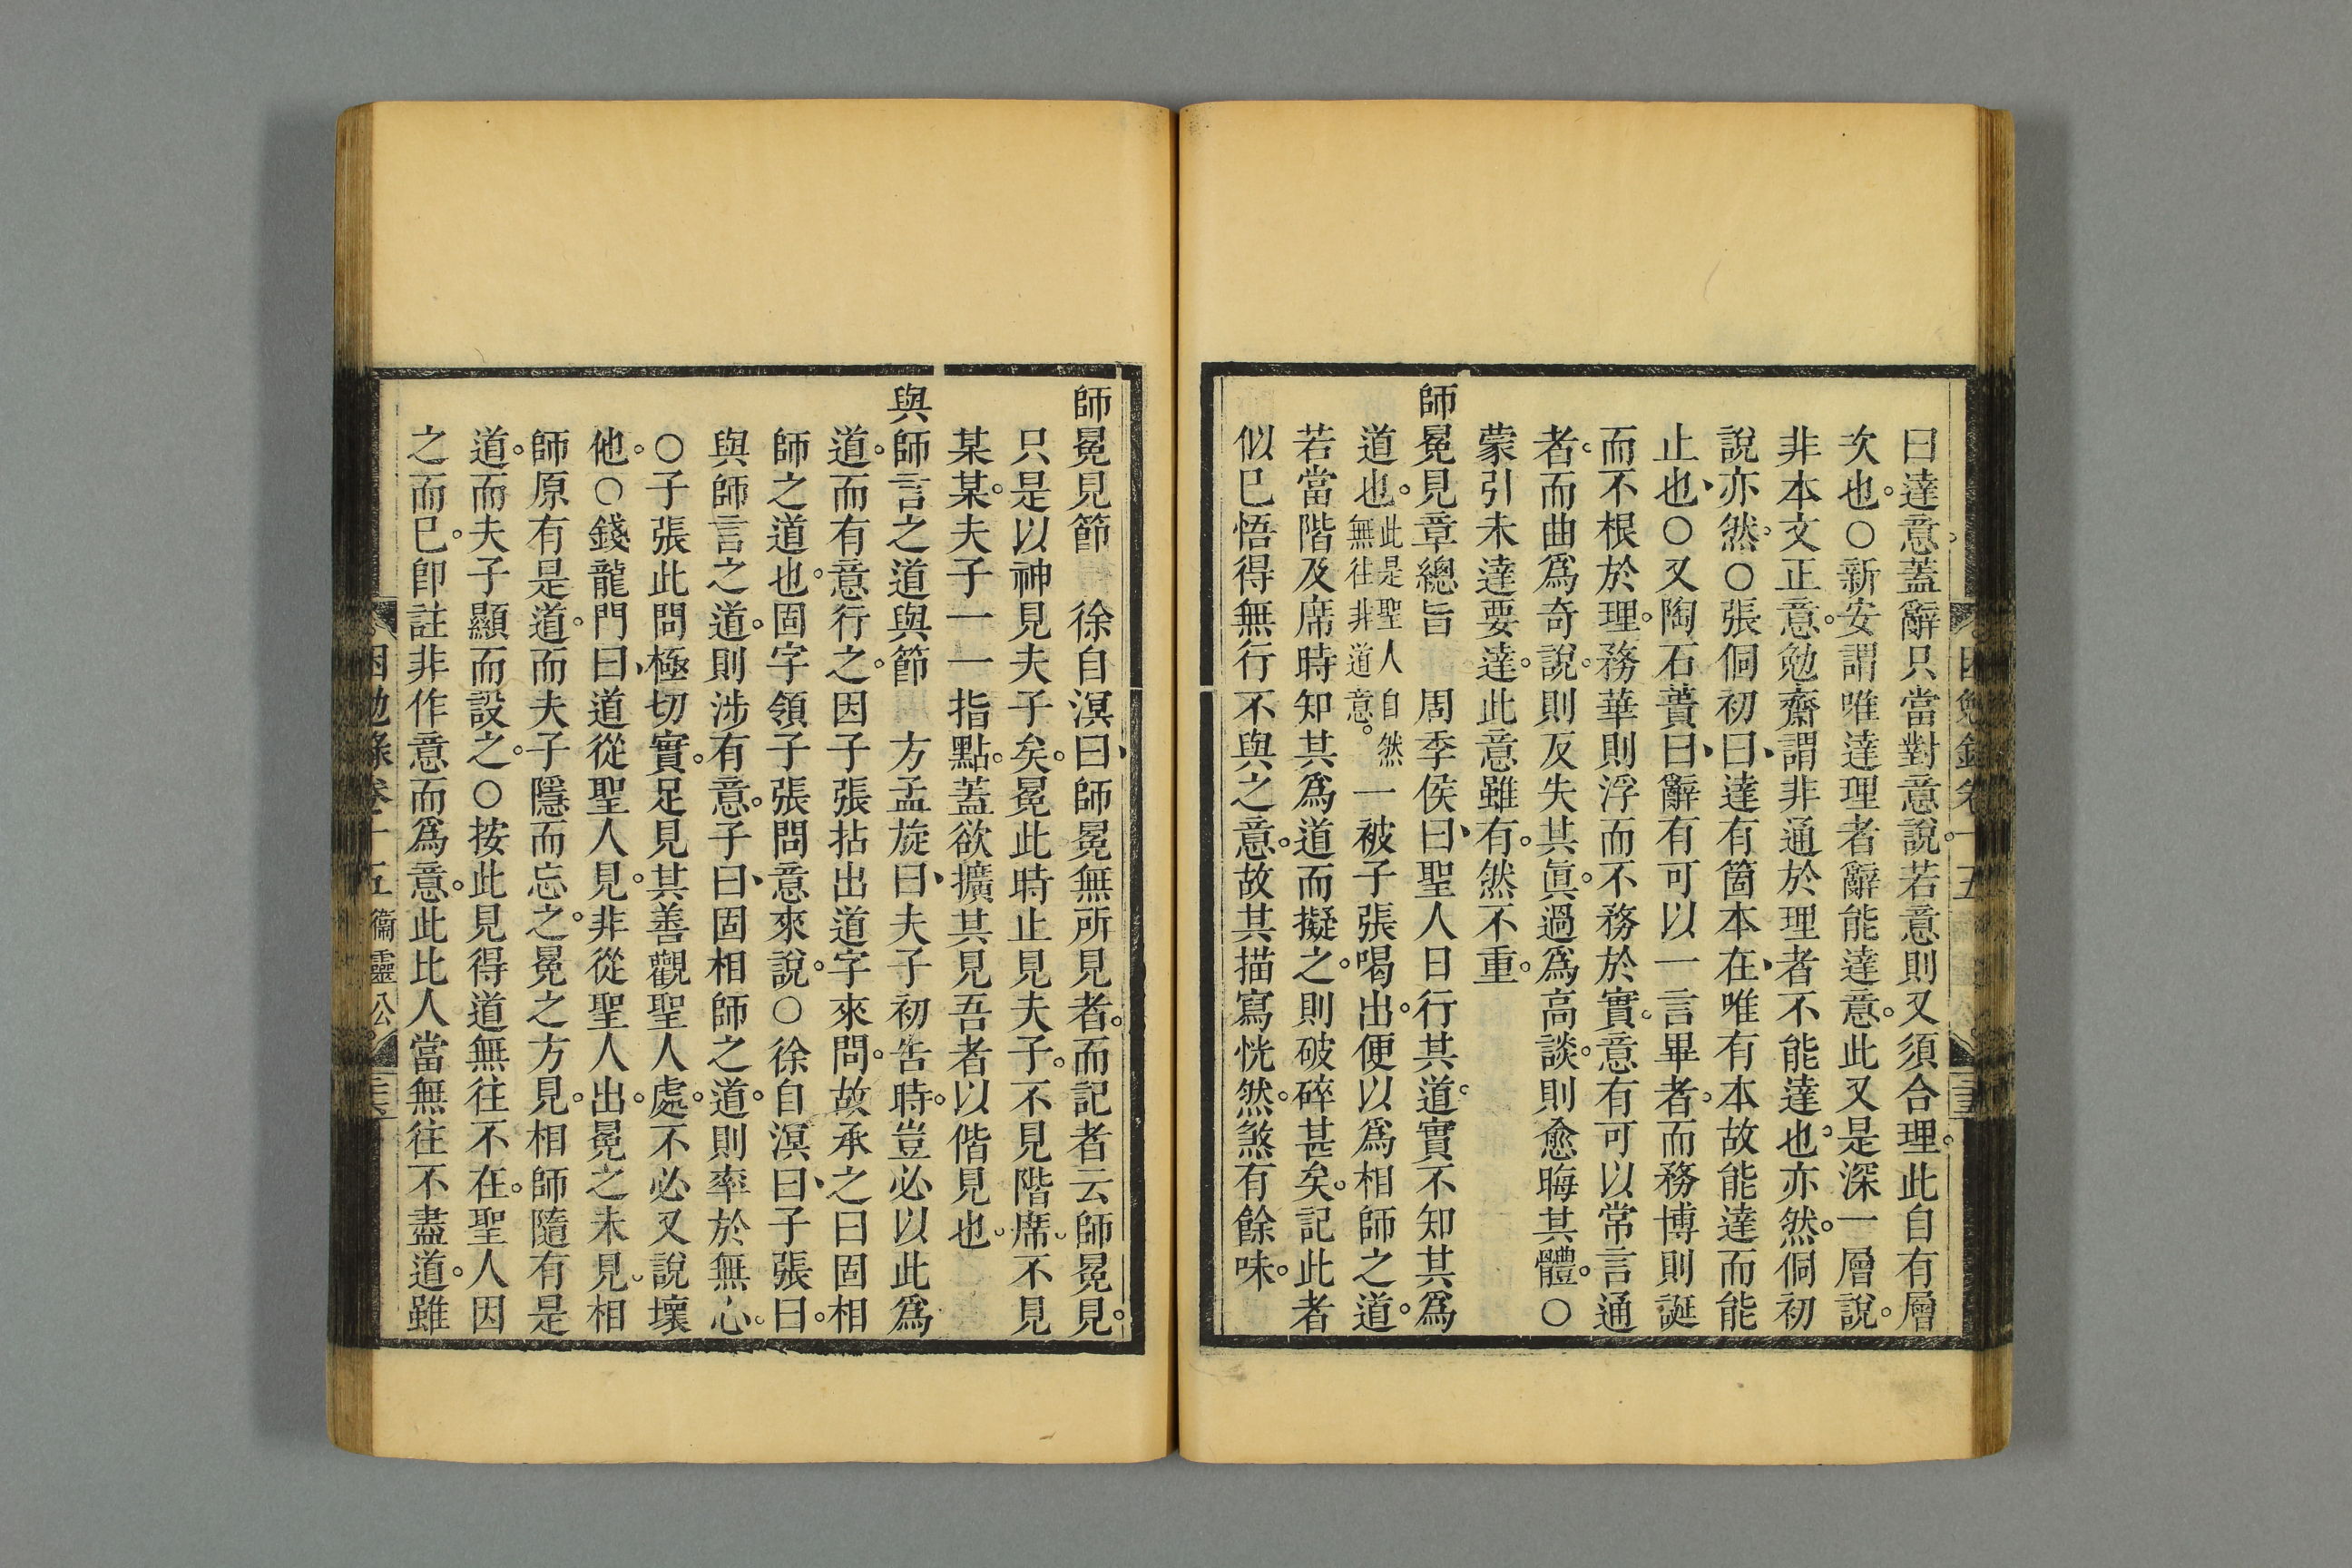 曰達意。蓋辭只當對意說。若意則又須合理。此自有層
次也。○新安謂唯達理者辭能達意。此又是深一層說。
非本文正意。勉齋謂非通於理者不能達也。亦然。侗初
說亦然。○張侗初曰、達有箇本在、唯有本故能達而能
止也、○又陶石蕢曰、辭有可以一言畢者。而務博則誕
而不根於理。務華則浮而不務於實。意有可以常言通
者。而曲爲奇說。則反失其眞。過爲高談。則愈晦其體。○
蒙引未達要達。此意雖有。然不重。
師冕見章總旨　周季侯曰、聖人日行其道。實不知其爲
道也。此是聖人自然無往非道意。一被子張喝出。便以爲相師之道。
若當階及席時知其爲道而擬之。則破碎甚矣。記此者
似已悟得無行不與之意。故其描寫恍然。煞有餘味。
師冕見節　徐自溟曰、師冕無所見者。而記者云師冕見。
只是以神見夫子矣。冕此時止見夫子。不見階席。不見
某某。夫子一一指點。蓋欲擴其見吾者以偕見也。
與師言之道與節　方孟旋曰、夫子初告時。豈必以此爲
道。而有意行之。因子張拈出道字來問。故承之曰固相
師之道也。固字領子張問意來說。○徐自溟曰、子張曰。
與師言之道。則涉有意。子曰、固相師之道。則率於無心。
○子張此問極切實。足見其善觀聖人處。不必又說壞
他。○錢龍門曰、道從聖人見。非從聖人出。冕之未見。相
師原有是道。而夫子隱而忘之。冕之方見。相師隨有是
道。而夫子顯而設之。○按此見得道無往不在。聖人因
之而已。卽註非作意而爲意。此比人當無往不盡道。雖
困勉錄卷十五　衞靈公